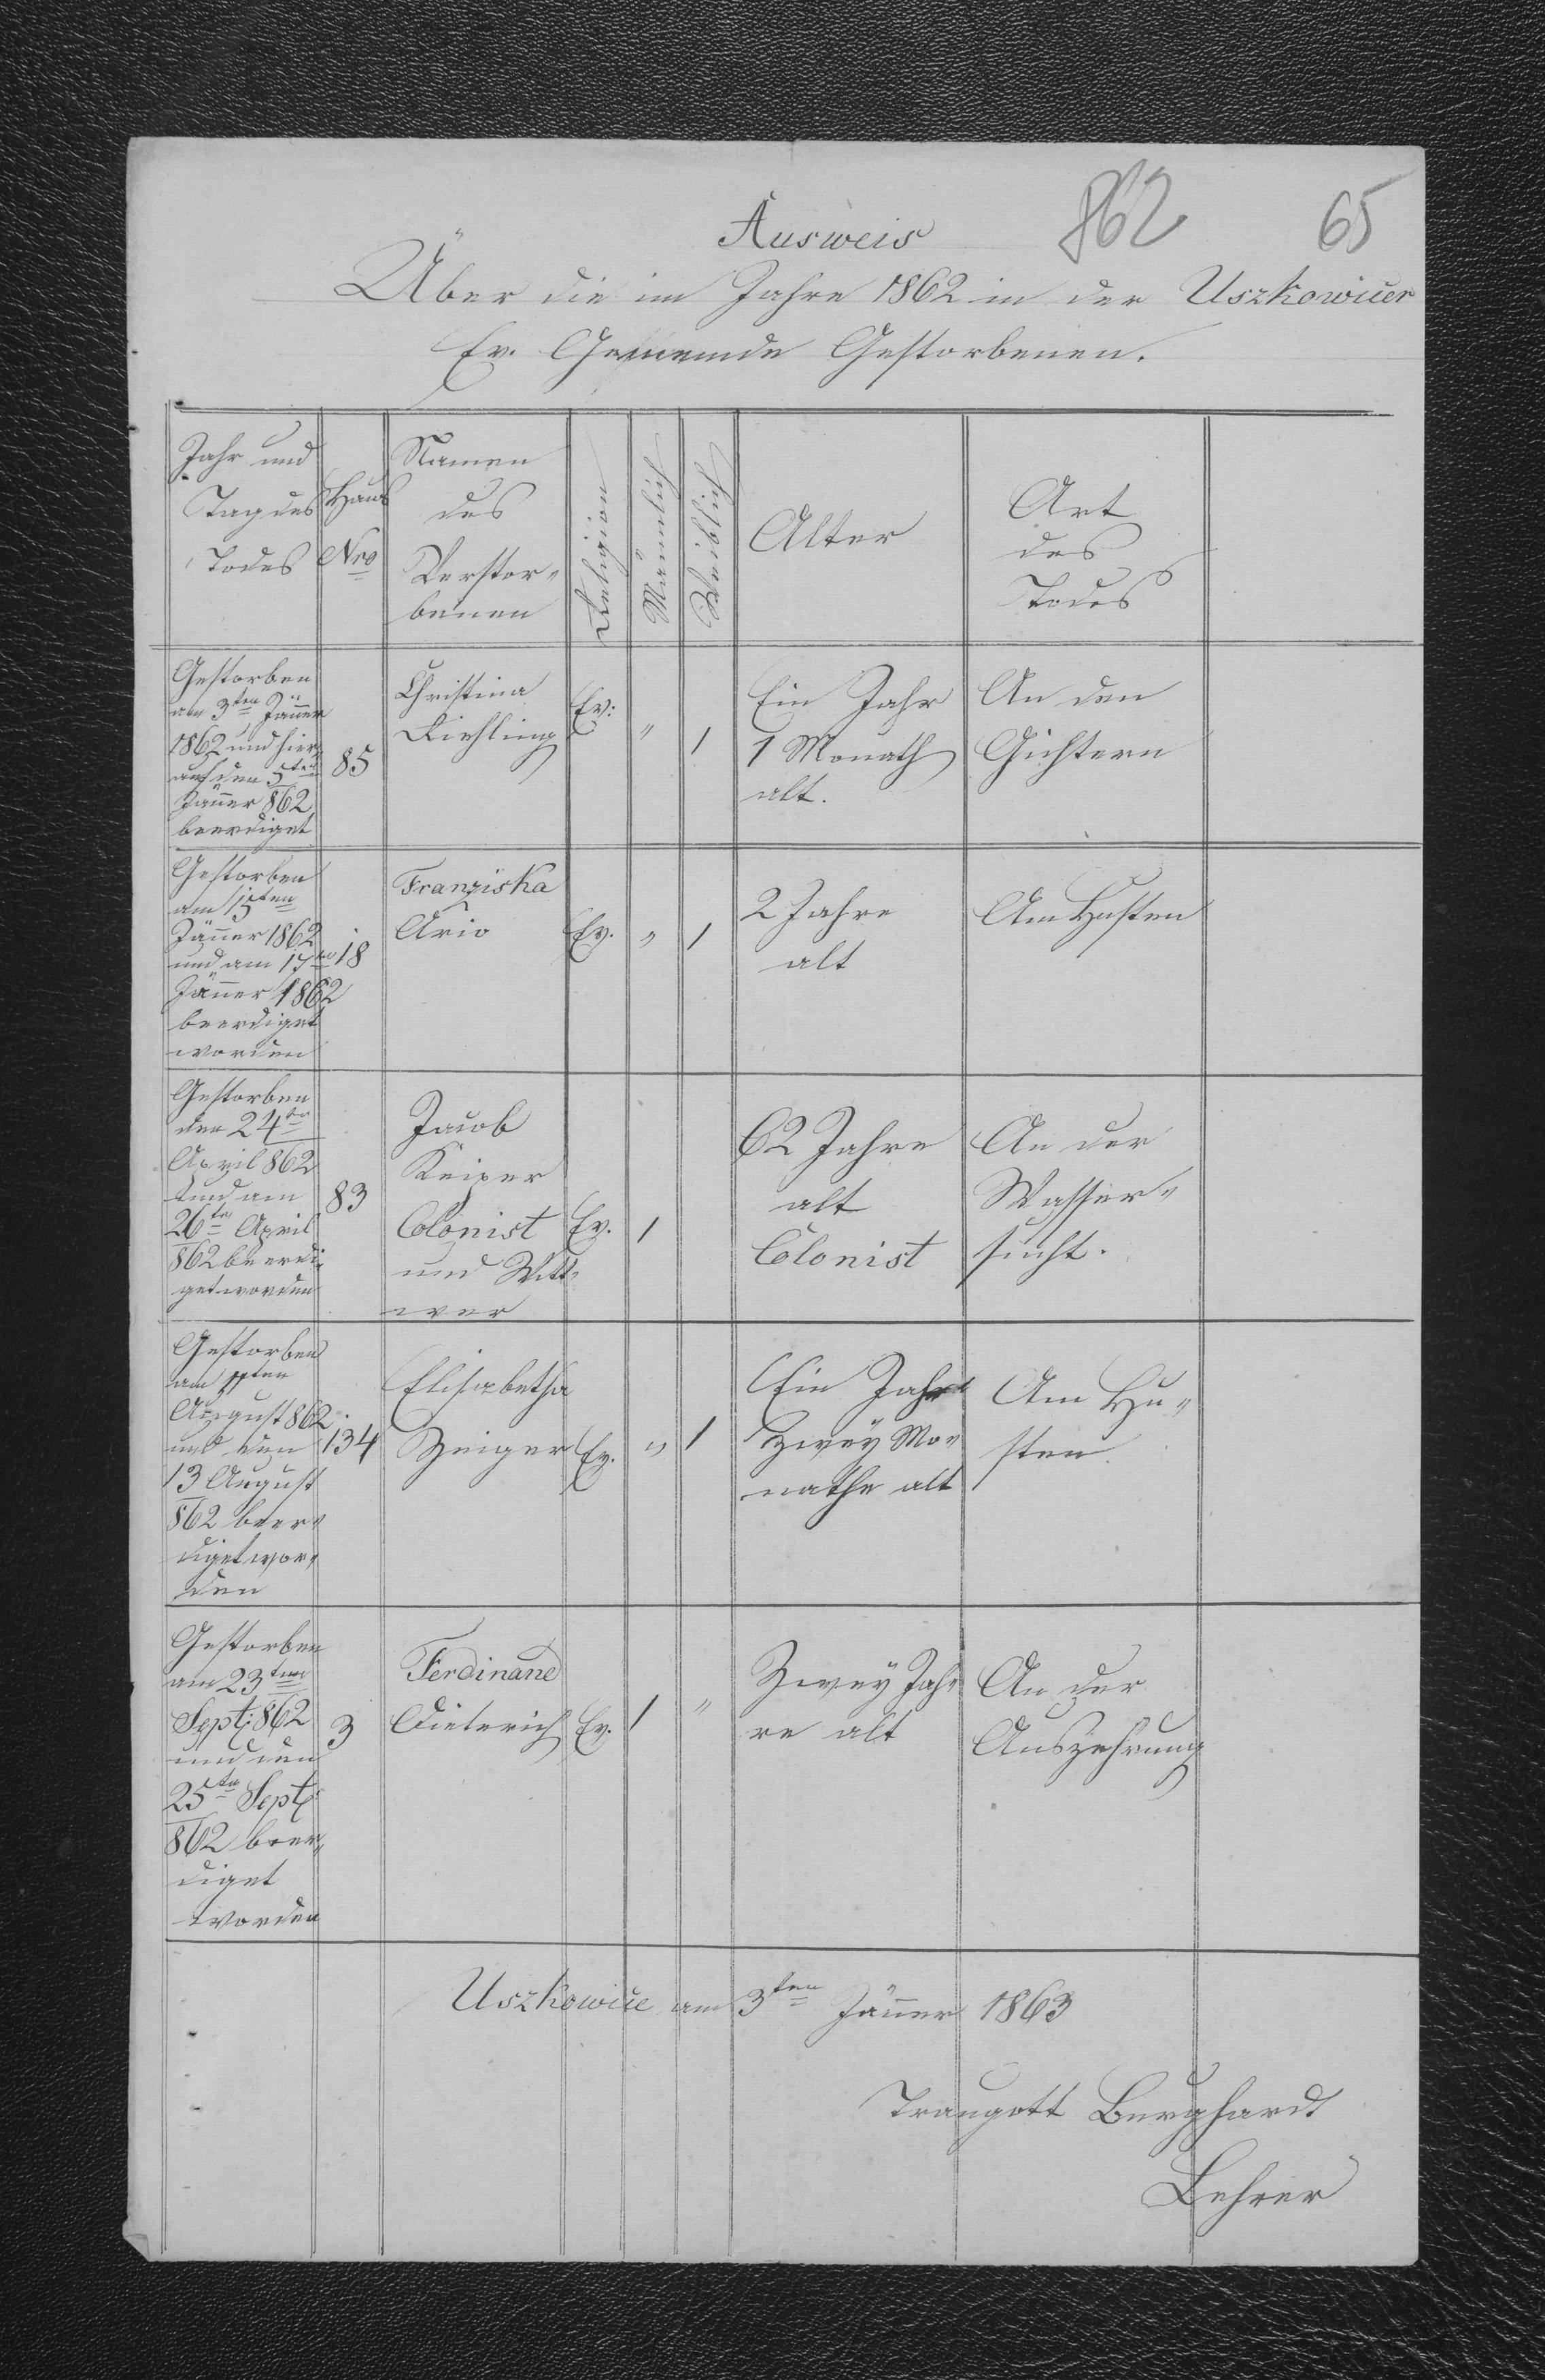 862 65
Ausweis
Über die im Jahre 1862 in der Uszkowicer
Ev. Gemeinde Gestorbenen.
Jahr und
Tag des
Todes
Haus
Nro
Namen
des
Verstor-
benen
Religion
Männlich
Weiblich
Alter
Art
des
Todes
Gestorben
am 3ten Jänner
1862 und hier
auf den 5ten
Jänner 862
beerdiget
85
Christina
Ev: " 1
Ein Jahr
1 Monath
alt.
An den
Gichtern
Gestorben
am 15ten
Jänner 1862
und am 17ten
Jänner 1862
beerdiget
worden
18
Franziska
Ario
Ev. " 1
2 Jahre
alt
Am Husten
Gestorben
den 24ten
April 862
und am
26ten April
862 beerdi-
get worden
83
Jacob
Keiper
Colonist
und Witt-
wer
Ev. 1
62 Jahre
alt
Colonist
An der
Wasser-
sucht.
Gestorben
am 11ten
August 862
und den
13 August
862 beer-
diget wor-
den
134
Elisabetha
Zeiger
Ev. " 1
Ein Jahr
Zwey Mo-
nathe alt
Am Hu-
sten
Gestorben
am 23ten
Sept: 862
und den
25ten Sept:
862 beer-
diget
worden
3
Ferdinand
Dieterich
Ev. 1 "
Zwey Jah-
re alt
An der
Auszehrung
Uszkowice am 3ten Jänner 1863
Traugott Burghardt
Lehrer